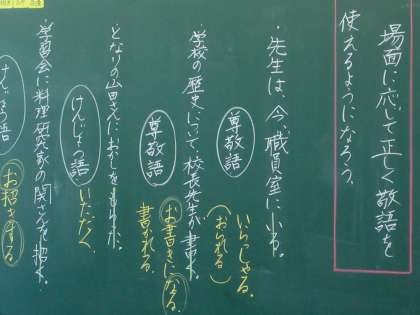 場面に応じて正しく敬語を
使えるようになろう。
・先生は、今、職員室にいる。
尊敬語
いらっしゃる。
(おられる)
・学校の歴史について校長先生が書く。
尊敬語
お書きになる。
書かれる。
・となりの山田さんにおかしをもらった。
けんじょう語
いただく。
・学習会に料理研究家の関さんを招く。
けんじょう語
お招きする